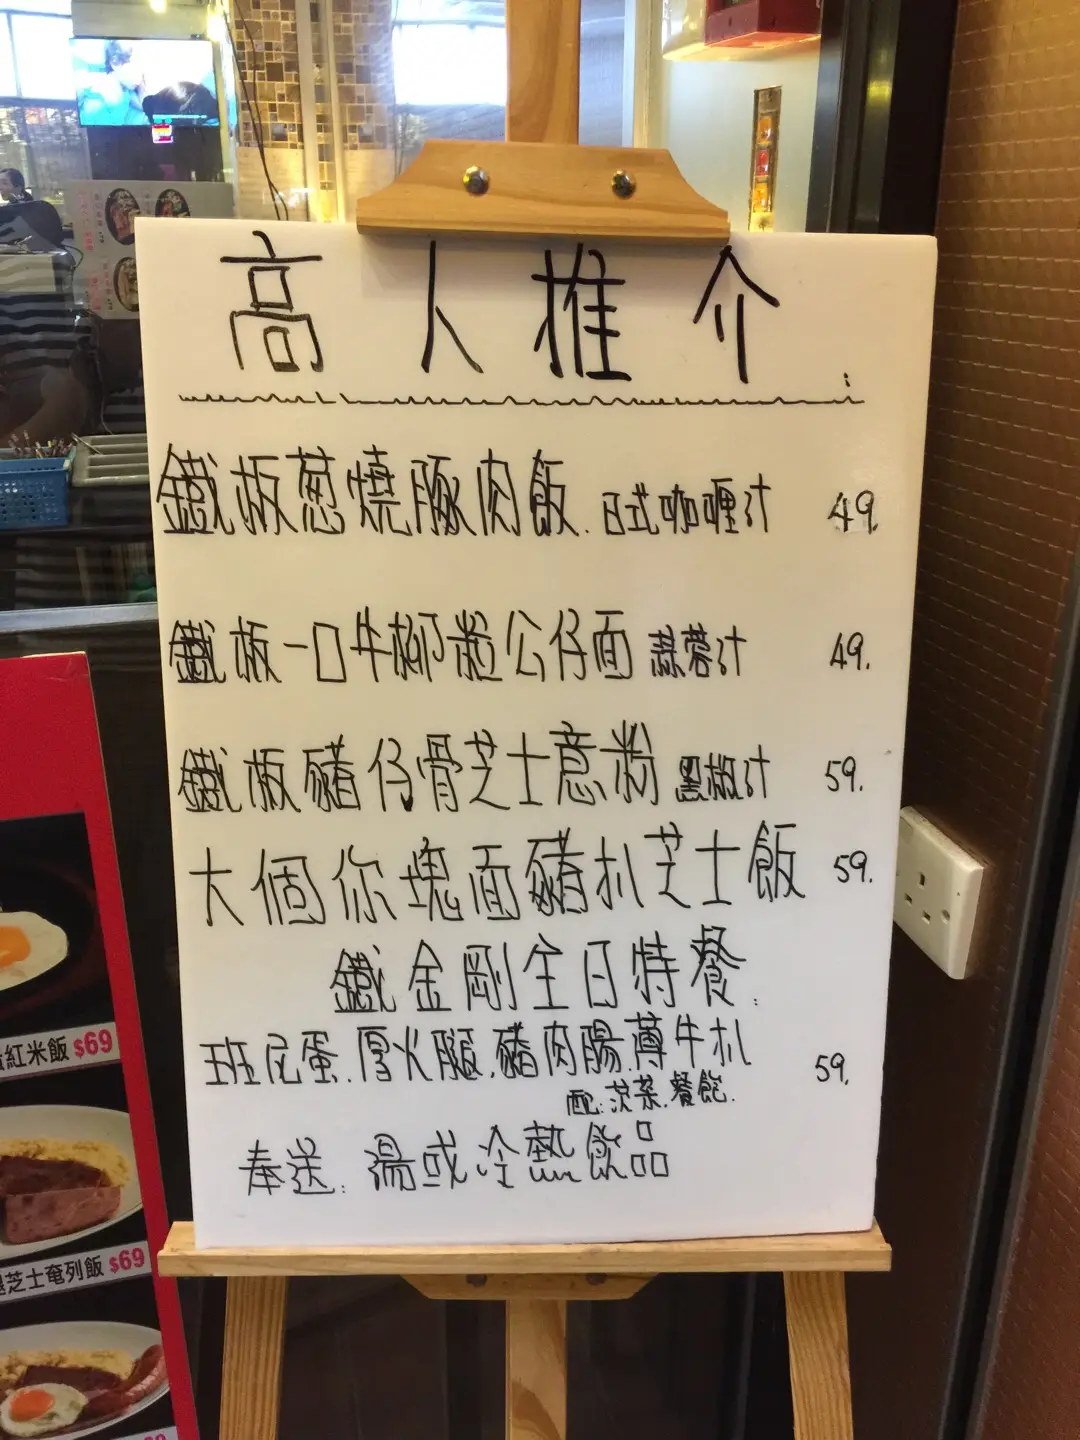 高人推介:
鐵板葱燒豚肉飯.日式咖喱汁 49.
鐵板一口牛柳粒公仔面 蒜蓉汁 49.
鐵板豬仔骨芝士意粉 黑椒汁 59.
大個你塊面豬扒芝士飯 59.
鐵金剛全日特餐:
班尼蛋.厚火腿.豬肉腸.薄牛扒 59.
配:沙菜.餐飽.
奉送:湯或冷熱飲品
紅米飯 $69
芝士奄列飯 $69